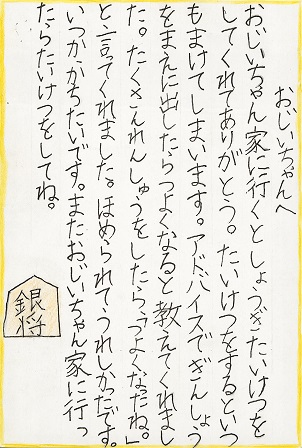 おじいちゃんへ
おじいちゃん家に行くとしょうぎたいけつを
してくれてありがとう。たいけつをするといつ
もまけてしまいます。アドバイスでぎんしょう
をまえに出したらつよくなると教えてくれまし
た。たくさんれんしゅうをしたら、「つよくなったね。」
と言ってくれました。ほめられてうれしかったです。
いつかかちたいです。またおじいちゃん家に行っ
たらたいけつをしてね。
銀将